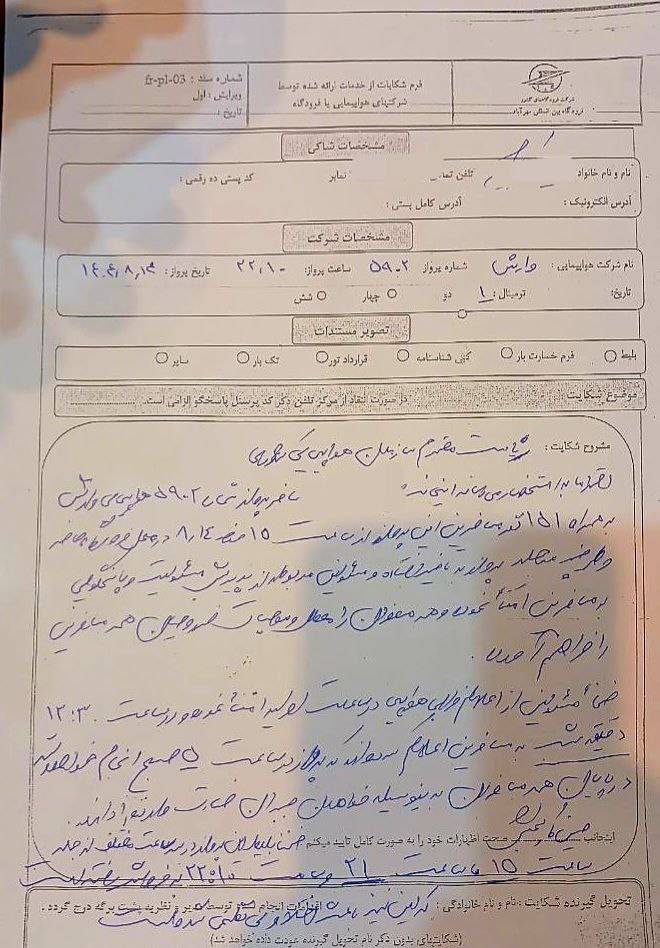 شرکت فرودگاههای کشور
فرودگاه بین المللی مهرآباد
فرم شکایات از خدمات ارائه شده توسط
شرکتهای هواپیمایی یا فرودگاه
شماره سند : fr-p1-03
ویرایش : اول
تاریخ :
مشخصات شاکی
نام و نام خانواد تلفن تما نمابر کد پستی ده رقمی :
آدرس الکترونیک : آدرس کامل پستی :
مشخصات شرکت
نام شرکت هواپیمایی : وارش شماره پرواز ۵۹۰۲ ساعت پرواز: ۲۲،۱۰ تاریخ پرواز: ۱۴۰۴،۸،۱۴
تاریخ: ترمینال: ۱ دو چهار شش
تصویر مستندات
بلیط فرم خسارت بار کپی شناسنامه قرارداد تور تگ بار سایر
موضوع شکایت در صورت انتقاد از مرکز تلفن ذکر کد پرسنل پاسخگو الزامی است.
مشروح شکایت : ریاست محترم سازمان هواپیمایی کشوری
احتراما به استحضار می رساند اینجانب مسافر پرواز شماره ۵۹۰۲ هواپیمایی وارش
به همراه ۱۵۱ نفر مسافرین این پرواز از ساعت ۱۵ مورخه ۸،۱۴ در محل فرودگاه حاضر
پرواز به تاخیر افتاده و مسئولین مربوطه از پذیرش مسئولیت و پاسخگویی
به مسافرین امتناع نموده و همه مسافران را معطل و موجبات همه مسافرین
را فراهم آورده.
ضمنا مسئولین از اعلام هواپیمایی در ساعت امتناع نموده و در ساعت ۱۲:۳۰
دقیقه شب به مسافرین اعلام می دارند که پرواز در ساعت ۵ صبح انجام خواهد شد
در پایان همه مسافران بدینوسیله خواهان جبران خسارت را دارند.
اینجانب صحت اظهارات خود را به صورت کامل تایید میکنم ضمنا بلیط این پرواز در ساعت مختلف از جمله
ساعت ۱۵ تا ساعت ۲۱ و ساعت ۲۲:۱۰ به فروش رفته است
تحویل گیرنده شکایت : نام و نام خانوادگی : اقدامات انجام توسط مدیر و نظریه پشت برگه درج گردد .
که این نیز باعث شده است
(شکایتهای بدون ذکر نام تحویل گیرنده عودت داده خواهد شد)